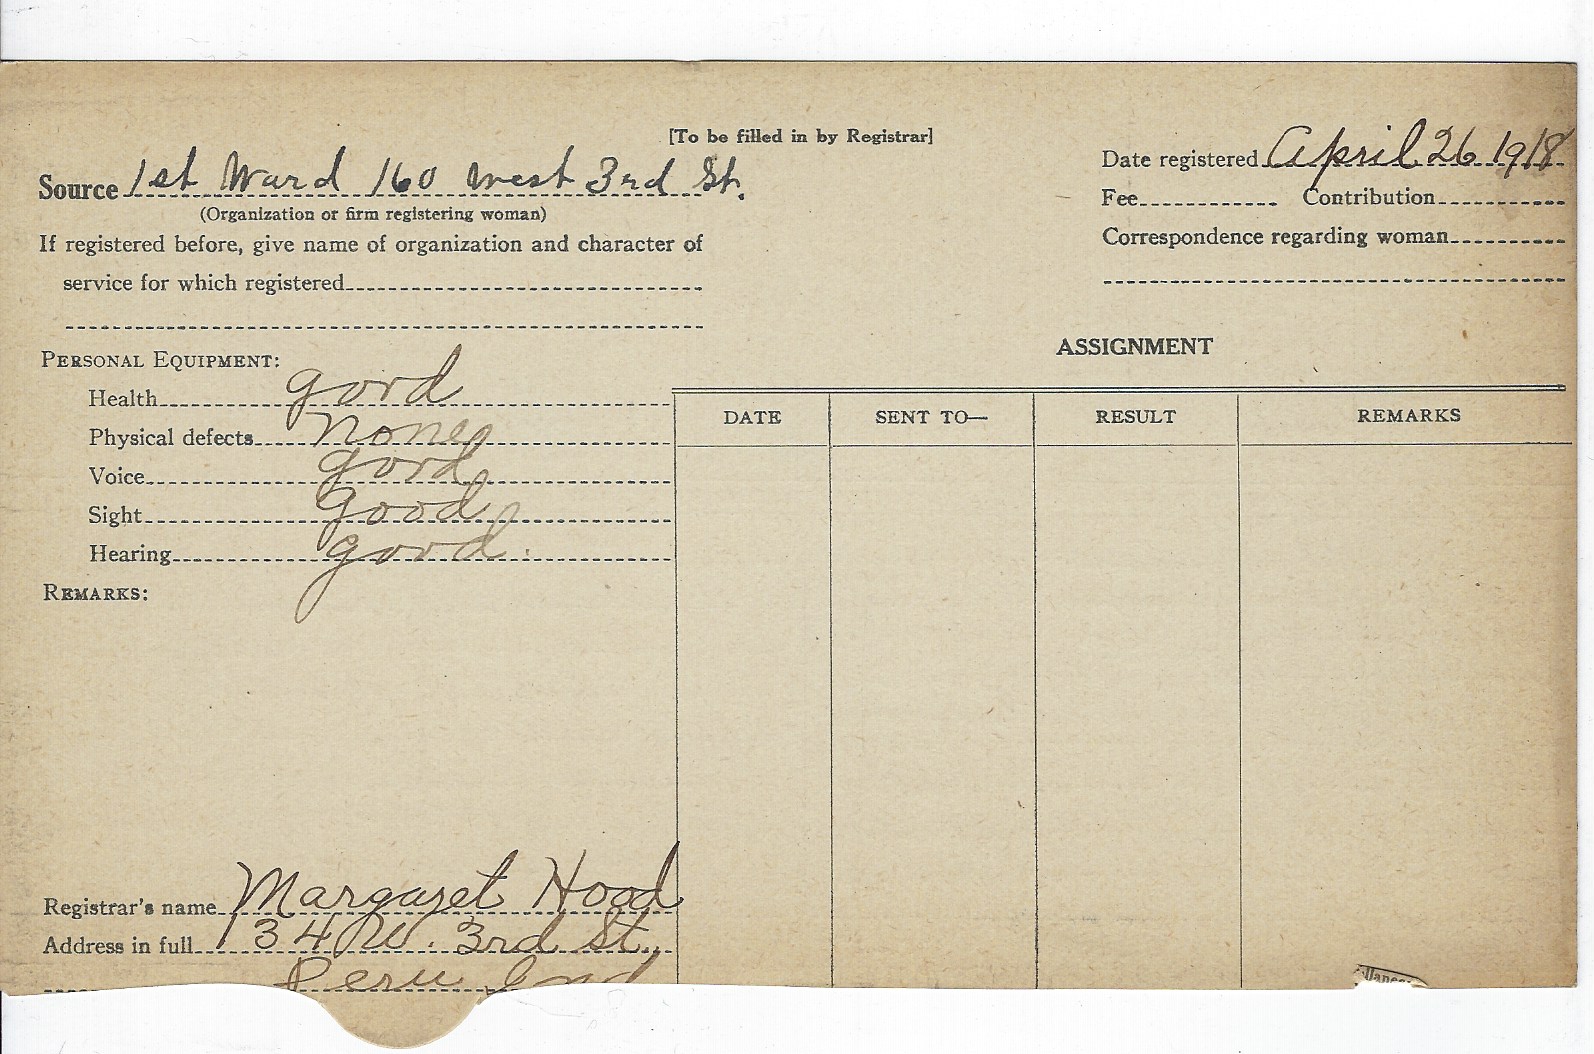 [To be filled in by Registrar]
Source 1st Ward 160 West 3rd St.
(Organization or firm registering woman)
If registered before, give name of organization and character of
service for which registered
Date registered April 26 1918
Fee Contribution
Correspondence regarding woman
PERSONAL EQUIPMENT:
Health good
Physical defects none
Voice good
Sight good
Hearing good.
REMARKS:
ASSIGNMENT
DATE SENT TO— RESULT REMARKS
Registrar's name Margaret Hood
Address in full 134 W. 3rd St.,
Peru Ind